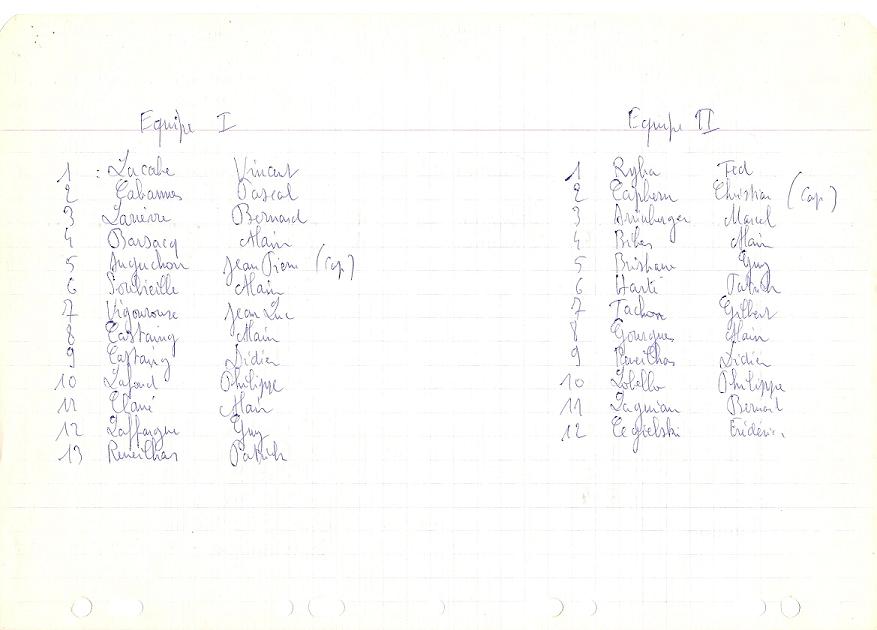 Equipe I
1 : Lacabe Vincent
2 Cabannes Pascal
3 Larièrre Bernard
4 Barsacq Alain
5 Juguchon Jean Pierre (Cap)
6 Soubieille Alain
7 Vigouroux Jean Luc
8 Castaing Alain
9 Castaing Didier
10 Lafond Philippe
11 Clavé Alain
12 Laffargue Guy
13 Reneilhas Patrick
Equipe II
1 Ryba Ted
2 Capbern Christian (Cap)
3 Marcel
4 Bibes Alain
5 Guy
6 Patrick
7 Tachon Gilbert
8 Gourgues Alain
9 Didier
10 Lobello Philippe
11 Laguian Benoit
12 Cegielski Frédéric